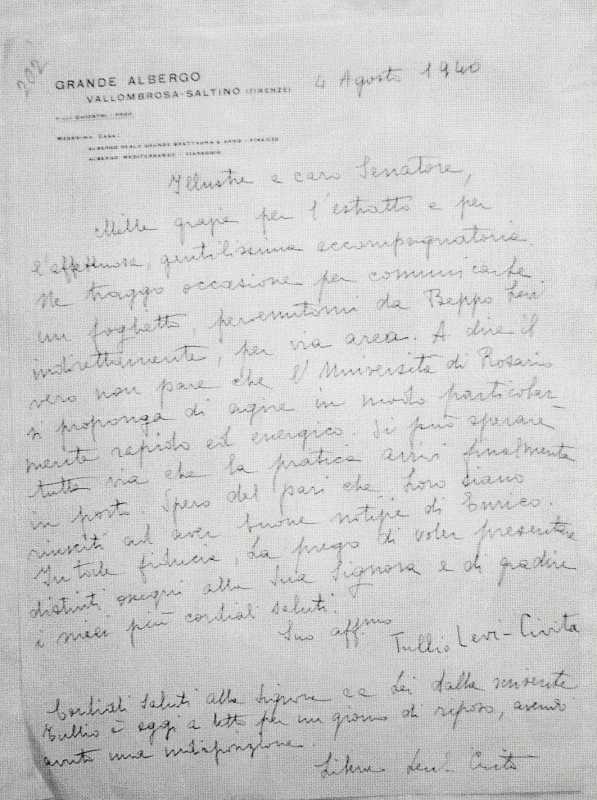 202
GRANDE ALBERGO
VALLOMBROSA-SALTINO (FIRENZE)
4 Agosto 1940
MEDESIMA CASA:
ALBERGO REALE GRANDE BRETTAGNA E ARNO - FIRENZE
ALBERGO MEDITERRANEO - VIAREGGIO
Illustre e caro Senatore,
Mille grazie per l'estratto e per
l'affettuosa, gentilissima accompagnatoria.
Ne traggo occasione per comunicarLe
un foglietto, pervenutomi da Beppo Levi
indirettamente, per via aerea. A dire il
vero non pare che l'Università di Rosario
si proponga di agire in modo particolar-
mente rapido ed energico. Si può sperare
tutta via che la pratica arrivi finalmente
in porto. Spero del pari che Loro siano
riusciti ad aver buone notizie di Enrico.
In tale fiducia, La prego di voler presentare
distinti ossequi alla Sua Signora e di gradire
i miei più cordiali saluti.
Suo affmo
Tullio Levi-Civita
Cordiali saluti alla Signora e a Lei dalla scrivente
Tullio è oggi a letto per un giorno di riposo, avendo
avuto una indisposizione.
Libera Levi Civita